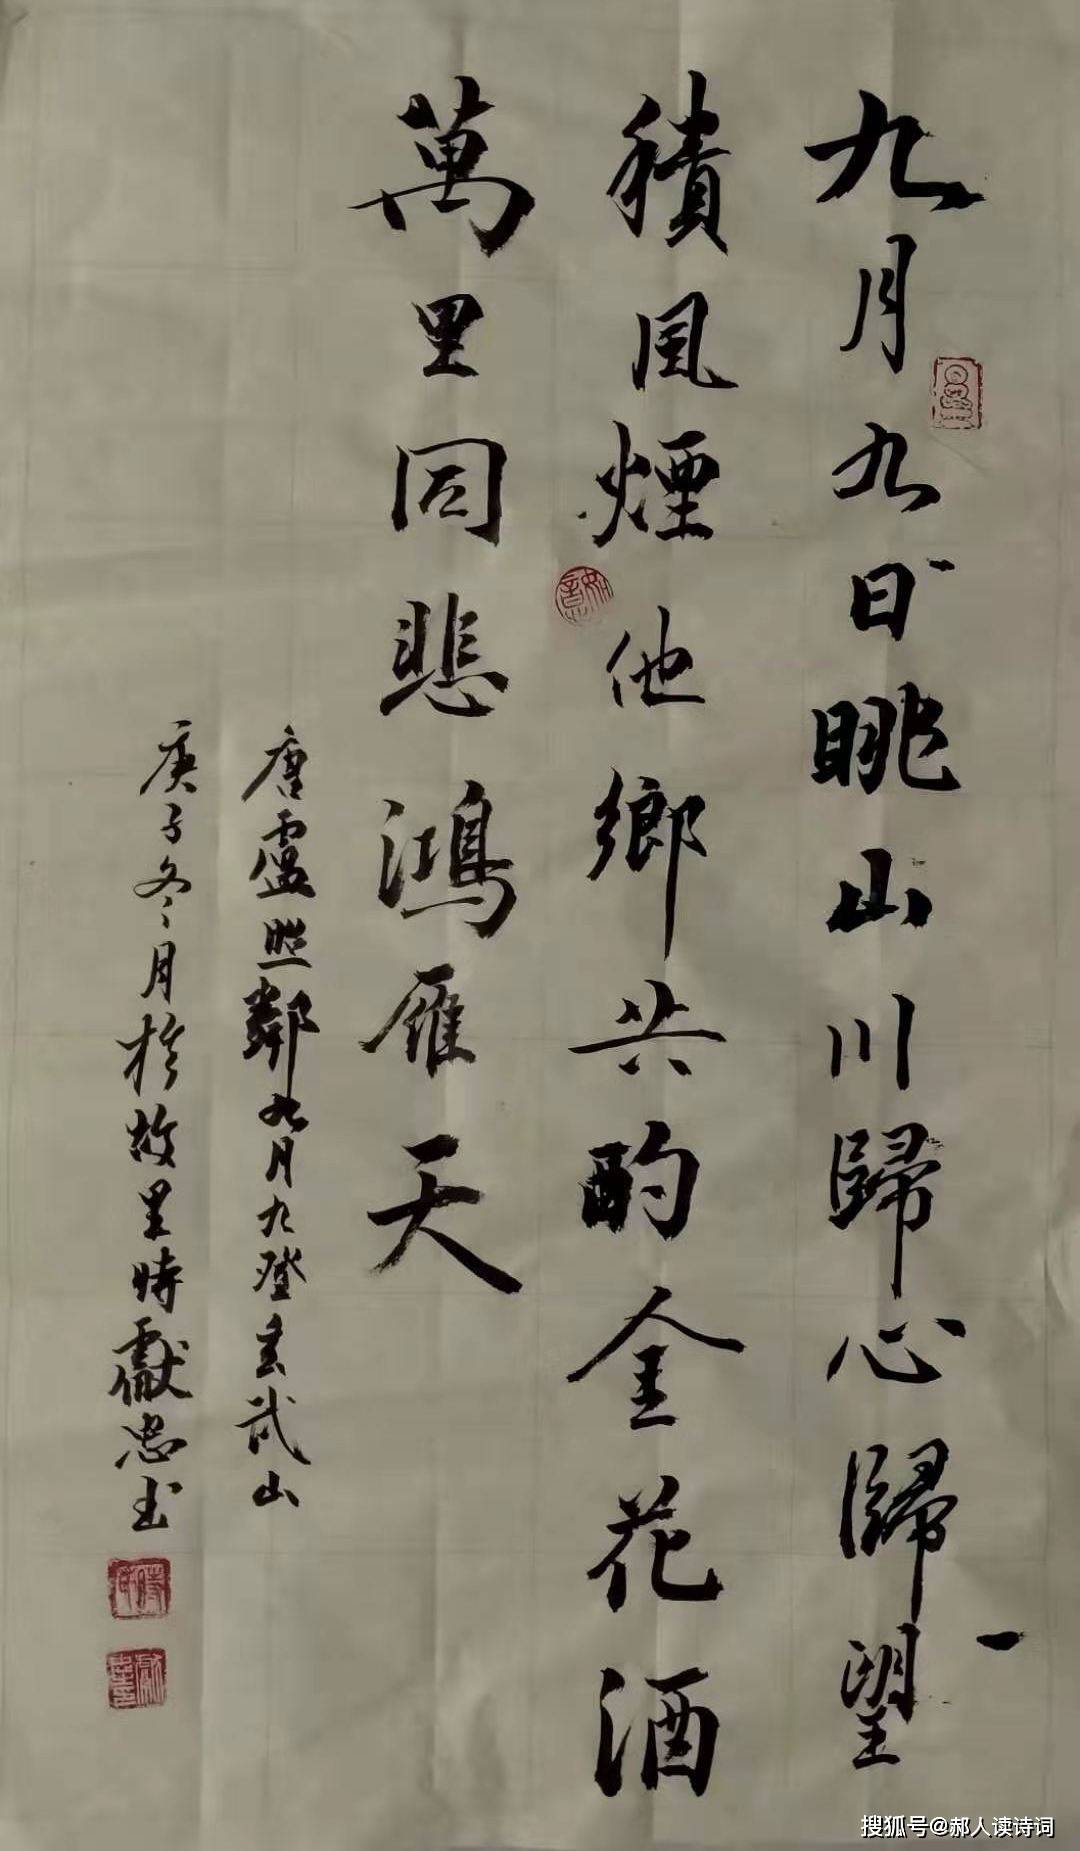 九月九日眺山川歸心歸望
積風煙他鄉共酌金花酒
萬里同悲鴻雁天
唐盧照鄰九月九登玄武山
庚子冬月於故里時獻忠书
如意
搜狐号@郝人读诗词